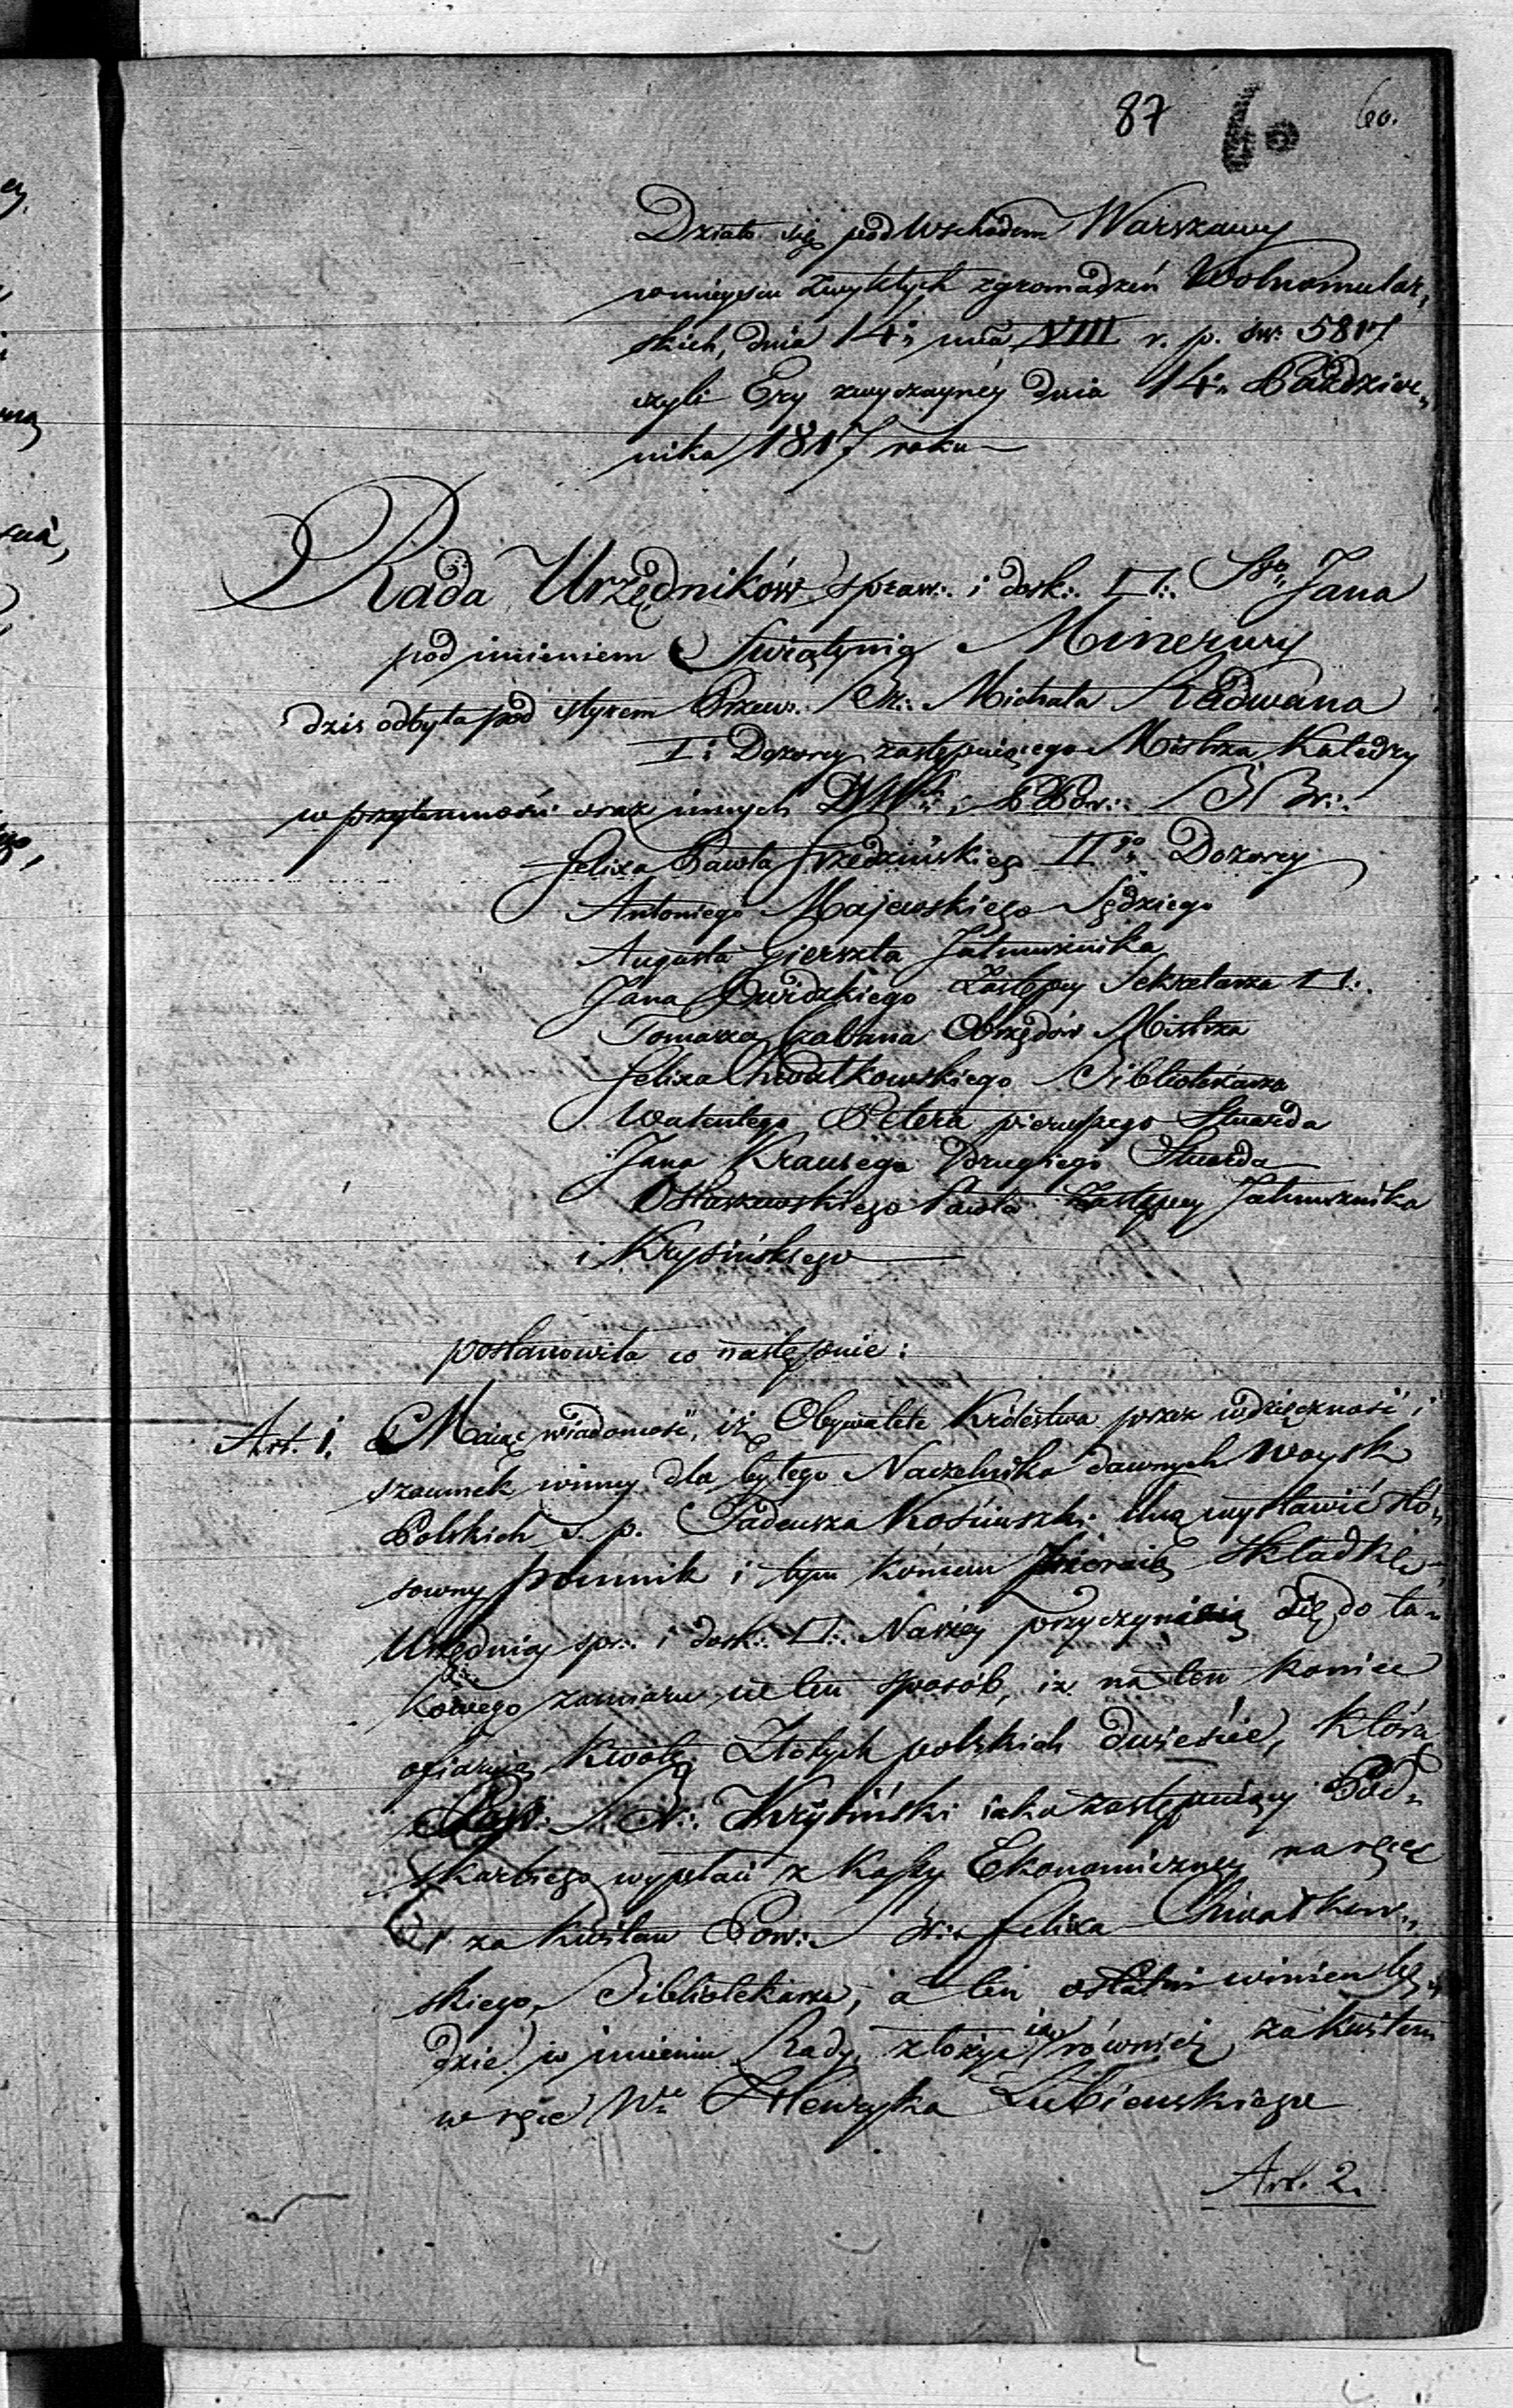 87 6. 60.
Działo się pod Wschodem Warszawy
w mieyscu zwykłych zgromadzeń Wolnomular„
skich, dnia 14: mca VIII r. p. św: 5817
czyli Ery zwyczaynéy dnia 14: Paździer„
nika 1817 roku—
Rada Urzędników spraw:. i dosk:. □:. Sgo Jana
pod imieniem Świątynia Minerwy
dzis odbyta pod styrem Przew:. Br:. Michała Radwana
I: Dozorcy zastępuiącego Mistrza Katedry
w przytomności oraz innych BBr:.
Felixa Pawła II go Dozorcy
Antoniego Majewskiego Sędziego
Augusta Gierszta Jałmużnika
Jana Zastępcy Sekretarza □:.
Tomasza Obrzędów Mistrza
Felixa Chwatkowskiego Bibliotekarza
Walentego Petera pierwszego Stuarda
Jana Krausego Drugiego Stuarda
Ostaszewskiego Pawła Zastępcy Jałmużnika
i Krysińskiego—
postanowiła co następuie:
Art. 1. Maiąc wiadomość, iż Obywatele Królestwa przez wdzięczność i
szacunek winny dla byłego Naczelnika dawnych Woysk
Polskich ś. p. Tadeusza Kościuszki chcą wystawić sto„
sowny pomnik i tym końcem składkę—
Urzędnicy spr:. i dosk:. □:. Naszéy przyczyniaią się do ta„
kowego zamiaru w ten sposób, iż na ten koniec
ofiaruią kwotę Złotych polskich dwieście, którą
Br:. Krysiński iako zastępuiący Pod„
skarbiego wypłaci z Kassy Ekonomiczney na ręce
i za kwitem Pow:. Br:. Felixa Chwatkow„
skiego, Bibliotekarza, a ten ostatni winien bę„
dzie w imieniu Rady złożyć ią równieź za kwitem
w ręce Wo Henryka Łubieńskiego
Art. 2.